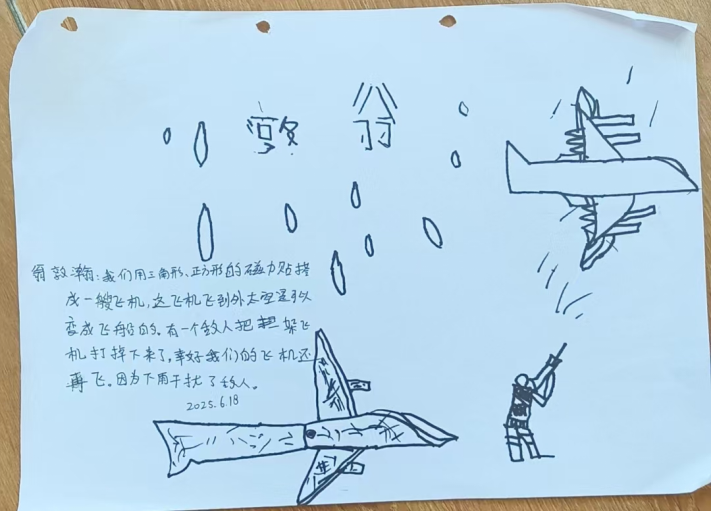 翁
翁敦瀚：我们用三角形、正方形的磁力贴拼
成一艘飞机，这飞机飞到外太空是可以
变成飞船的。有一个敌人把架飞
机打掉下来了，幸好我们的飞机还
再飞。因为下雨干扰了敌人。
2025.6.18